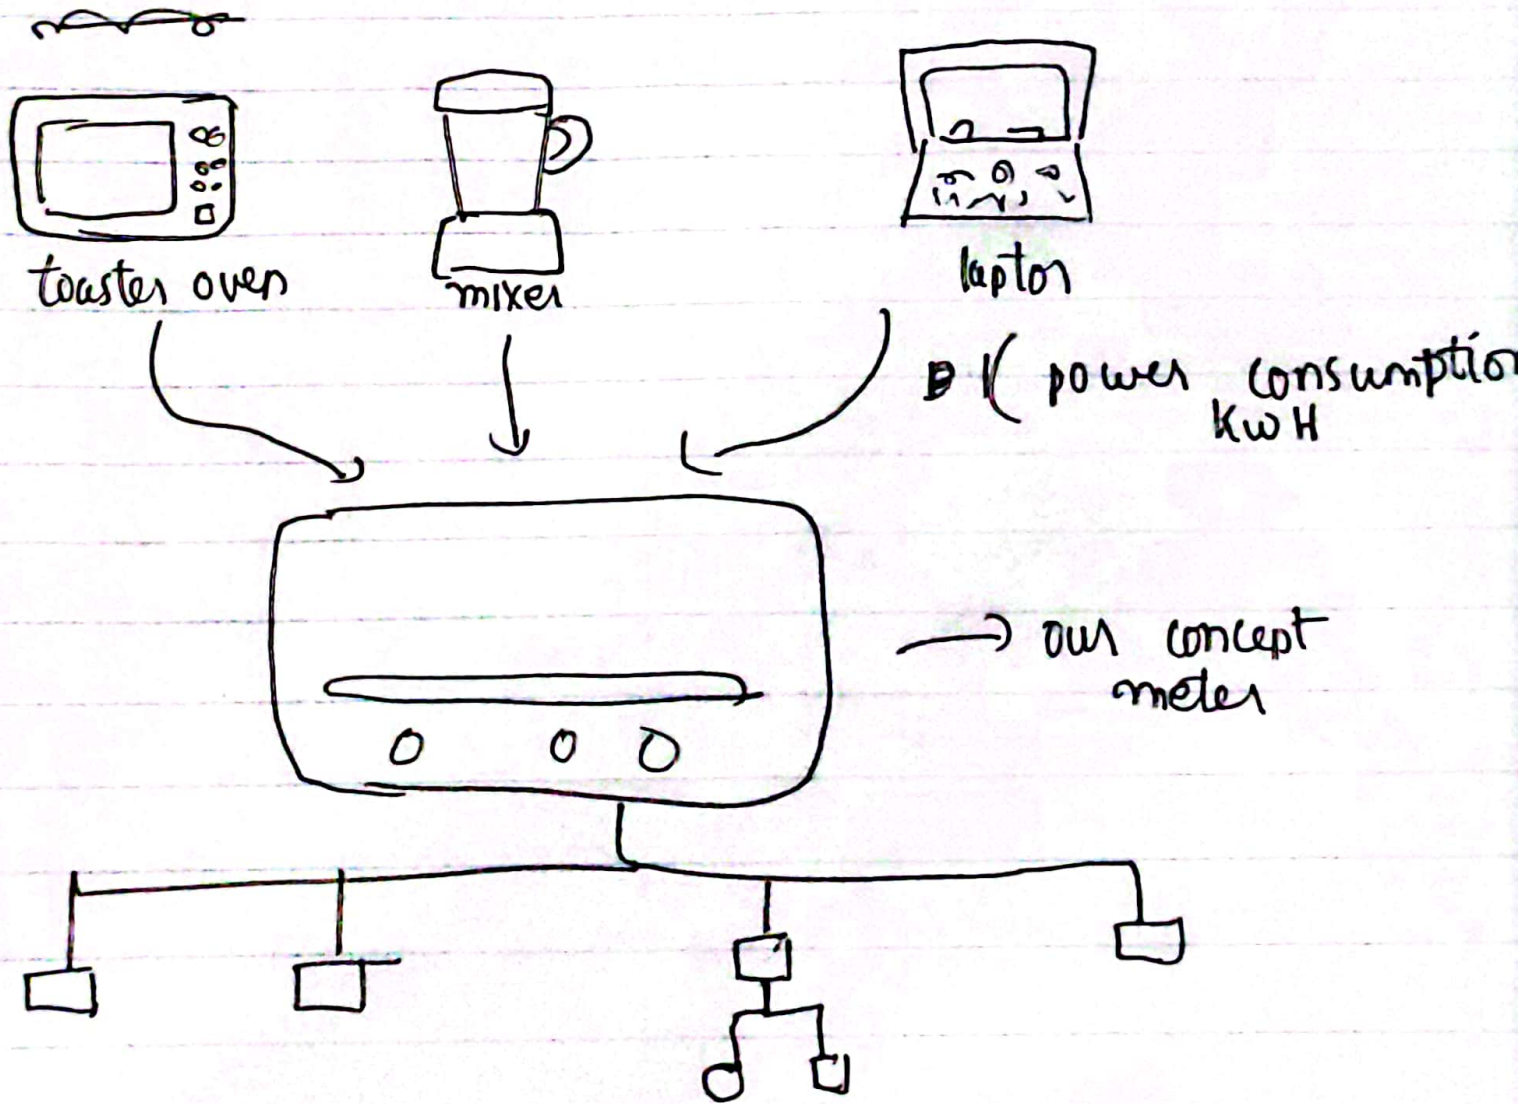 toaster oven
mixer
laptop
power consumption
KWH
our concept
meter